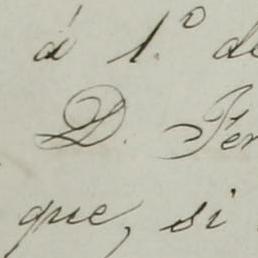 á 1.º de
D. Fer
que, si